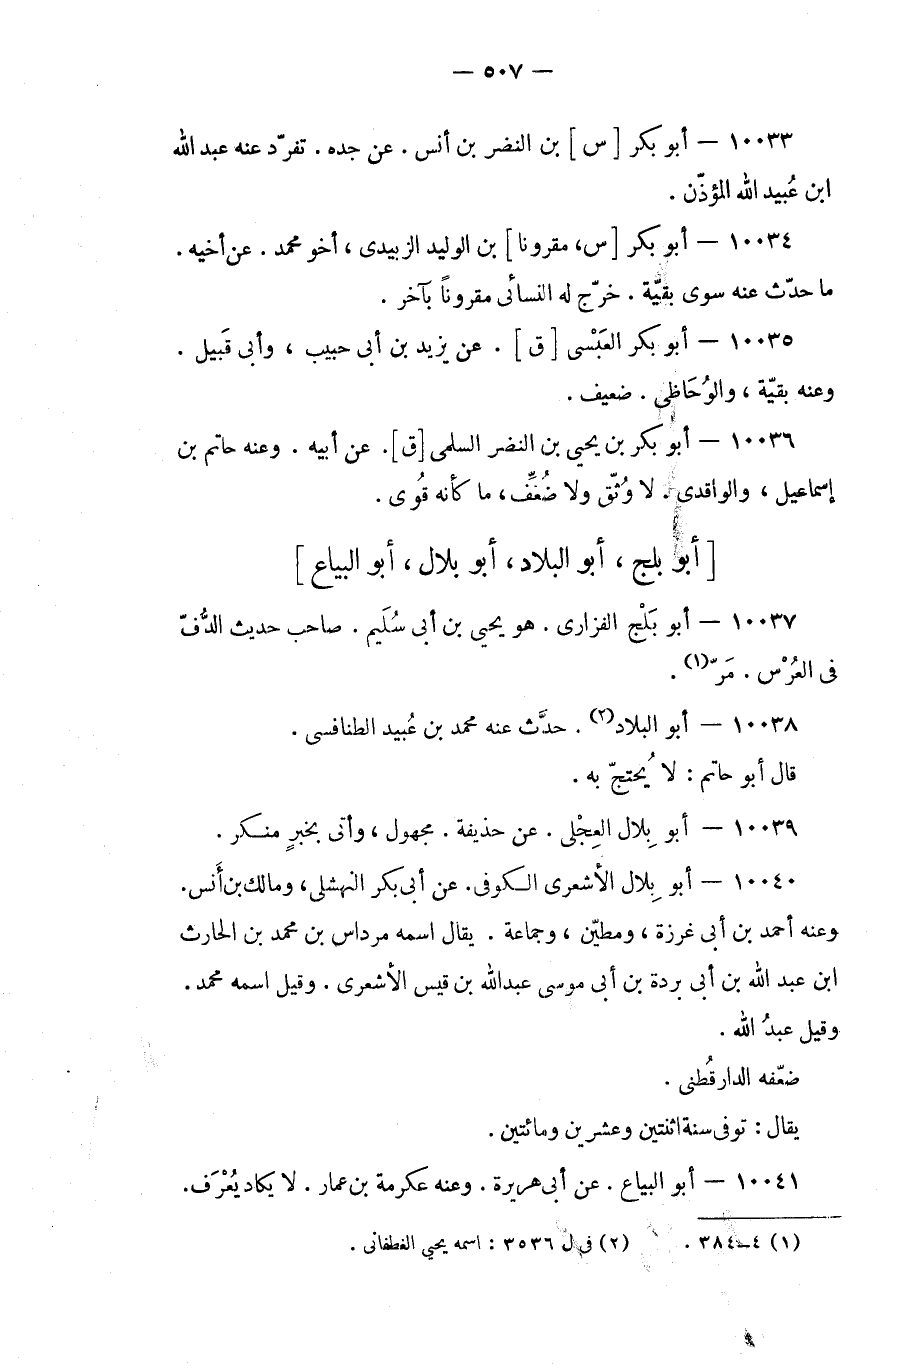 — ٥٠٧ —
١٠٠٣٣ — أبو بكر [ س ] بن النضر بن أنس . عن جده . تفرّد عنه عبد الله
ابن عُبيد الله المؤذّن .
١٠٠٣٤ — أبو بكر [ س، مقرونا ] بن الوليد الزبيدى ، أخو محمد . عن أخيه .
ما حدّث عنه سوى بقيّة . خرّج له النسائى مقروناً بآخر .
١٠٠٣٥ — أبو بكر العَبْسى [ ق ] . عن يزيد بن أبى حبيب ، وأبى قَبيل .
وعنه بقيّة ، والوُحَاظى . ضعيف .
١٠٠٣٦ — أبو بكر بن يحيى بن النضر السلمى [ق]. عن أبيه . وعنه حاتم بن
إسماعيل ، والواقدى . لا وُثّق ولا ضُعِّف ، ما كأنه قوى .
[ أبو بلج ، أبو البلاد، أبو بلال ، أبو البياع ]
١٠٠٣٧ — أبو بَلْج الفزارى . هو يحيى بن أبى سُلَيم . صاحب حديث الدُّفّ
فى العُرْس . مَرّ(١) .
١٠٠٣٨ — أبو البلاد(٢) . حدَّث عنه محمد بن عُبيد الطنافسى .
قال أبو حاتم : لا يُحتجّ به .
١٠٠٣٩ — أبو بِلال العِجْلى . عن حذيفة . مجهول ، وأتى بخبرٍ منكر .
١٠٠٤٠ — أبو بِلال الأشعرى الكوفى. عن أبى بكر النهشلى، ومالك بن أَنس.
وعنه أحمد بن أبى غرزة ، ومطيّن ، وجماعة . يقال اسمه مرداس بن محمد بن الحارث
ابن عبد الله بن أبى بردة بن أبى موسى عبدالله بن قيس الأشعرى . وقيل اسمه محمد .
وقيل عبدُ الله .
ضعّفه الدارقُطنى .
يقال : توفى سنة اثنتين وعشرين ومائتين .
١٠٠٤١ — أبو البياع . عن أبى هريرة . وعنه عكرمة بن عمار . لا يكاد يُعْرَف.
(١) ٤ــ٣٨٤ . (٢) فى ل ٣٥٣٦ : اسمه يحيى الغطفانى .